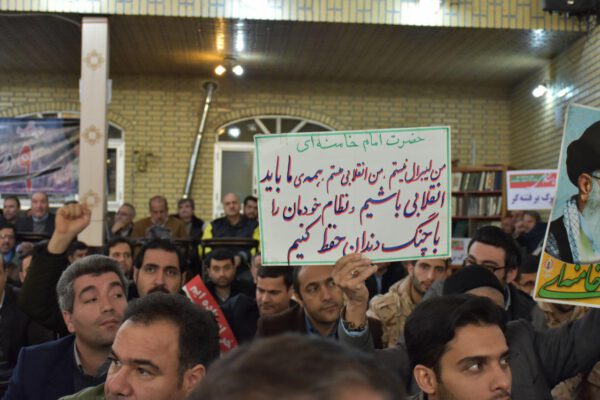 حضرت امام خامنه‌ای
من لیبرال نیستم ، من انقلابی هستم ، همه‌ی ما باید
انقلابی باشیم و نظام خودمان را
با چنگ و دندان حفظ کنیم
خامنه‌ای
مرگ بر فتنه گر